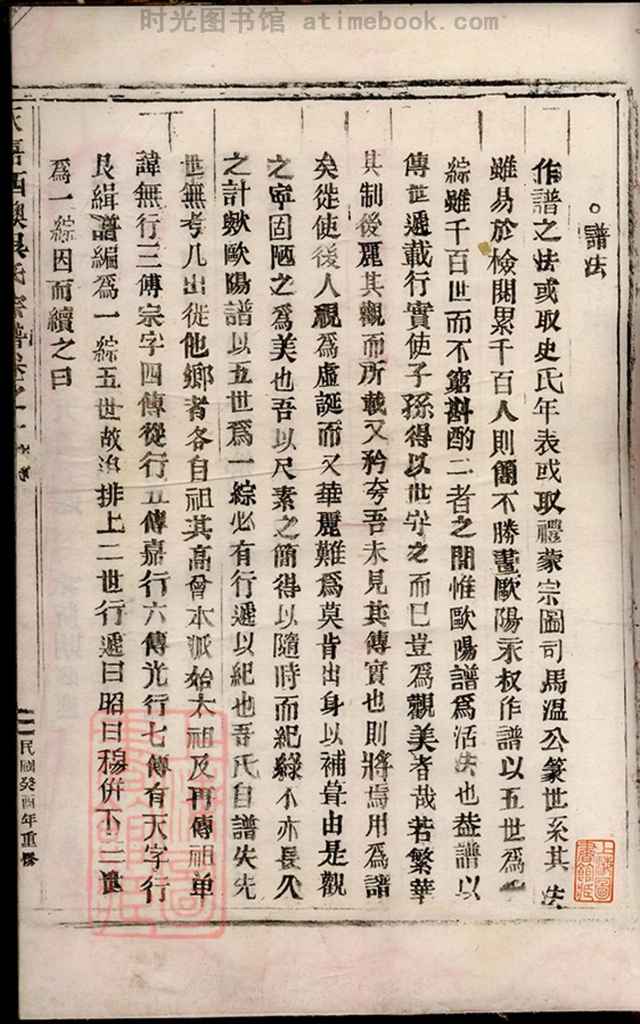 时光图书馆 atimebook.com
譜法
作譜之法或取史氏年表或取禮蒙宗圖司馬溫公篆世系其法
雖易於檢閱累千百人則簡不勝畫歐陽永叔作譜以五世為一
綜雖千百世而不窮斟酌二者之間惟歐陽譜為活法也葢譜以
傳世遞載行實使子孫得以世守之而已豈為觀美者哉若繁華
其制後麗其觀而所載又矜夸吾未見其傳實也則將焉用為譜
矣徙使後人視為虛誕而又華麗難為莫肯出身以補葺由是觀
之寧固陋之為美也吾以尺素之簡得以隨時而紀綠不亦長久
之計歟歐陽譜以五世爲一綜必有行遞以紀也吾氏自譜失先
世無考凡出從他鄉者各自祖其高曾本派始太祖及再傳祖单
諱無行三傳宗字四傳從行五傳嘉行六傳光行七傳有天字行
艮緝譜編爲一綜五世故追排上二世行遞曰昭曰穆併下三
爲一綜因而續之曰
西澳吳氏宗譜卷之一
民國癸酉年重修
上海圖書館藏